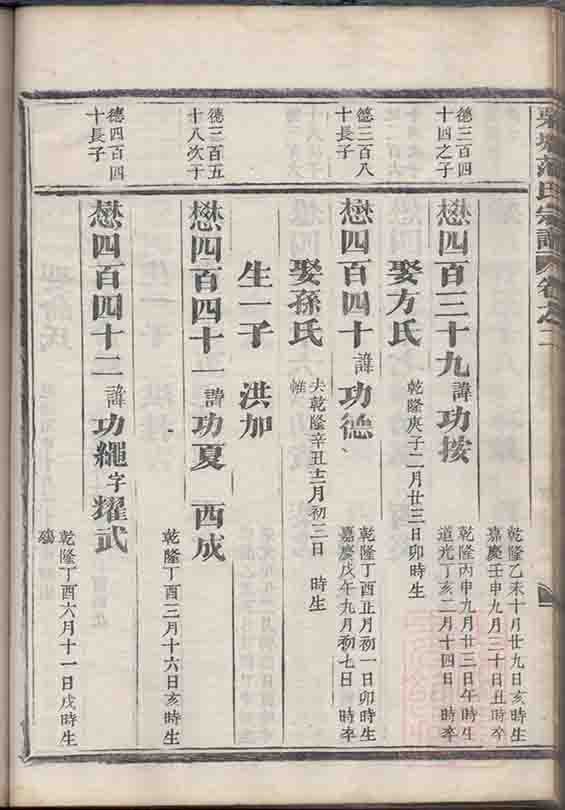 范氏宗譜 卷之二
乾隆乙未十月廿九日亥時生
嘉慶壬申九月三十日丑時卒
德三百四
十四之子
懋四百三十九 諱 功按
乾隆丙申九月廿三日午時生
道光丁亥二月十四日 時卒
娶方氏
乾隆庚子二月廿三日卯時生
德三百八
十長子
懋四百四十 諱 功德
乾隆丁酉正月初一日卯時生
嘉慶戊午九月初七日 時卒
娶孫氏
夫乾隆辛丑十二月初二日 時生
帷
生一子 洪加
德三百五
十八次子
懋四百四十一 諱 功夏 西成
乾隆丁酉三月十六日亥時生
德四百四
十長子
懋四百四十二 諱 功繩 字 耀武
乾隆丁酉六月十一日戌時生
殤